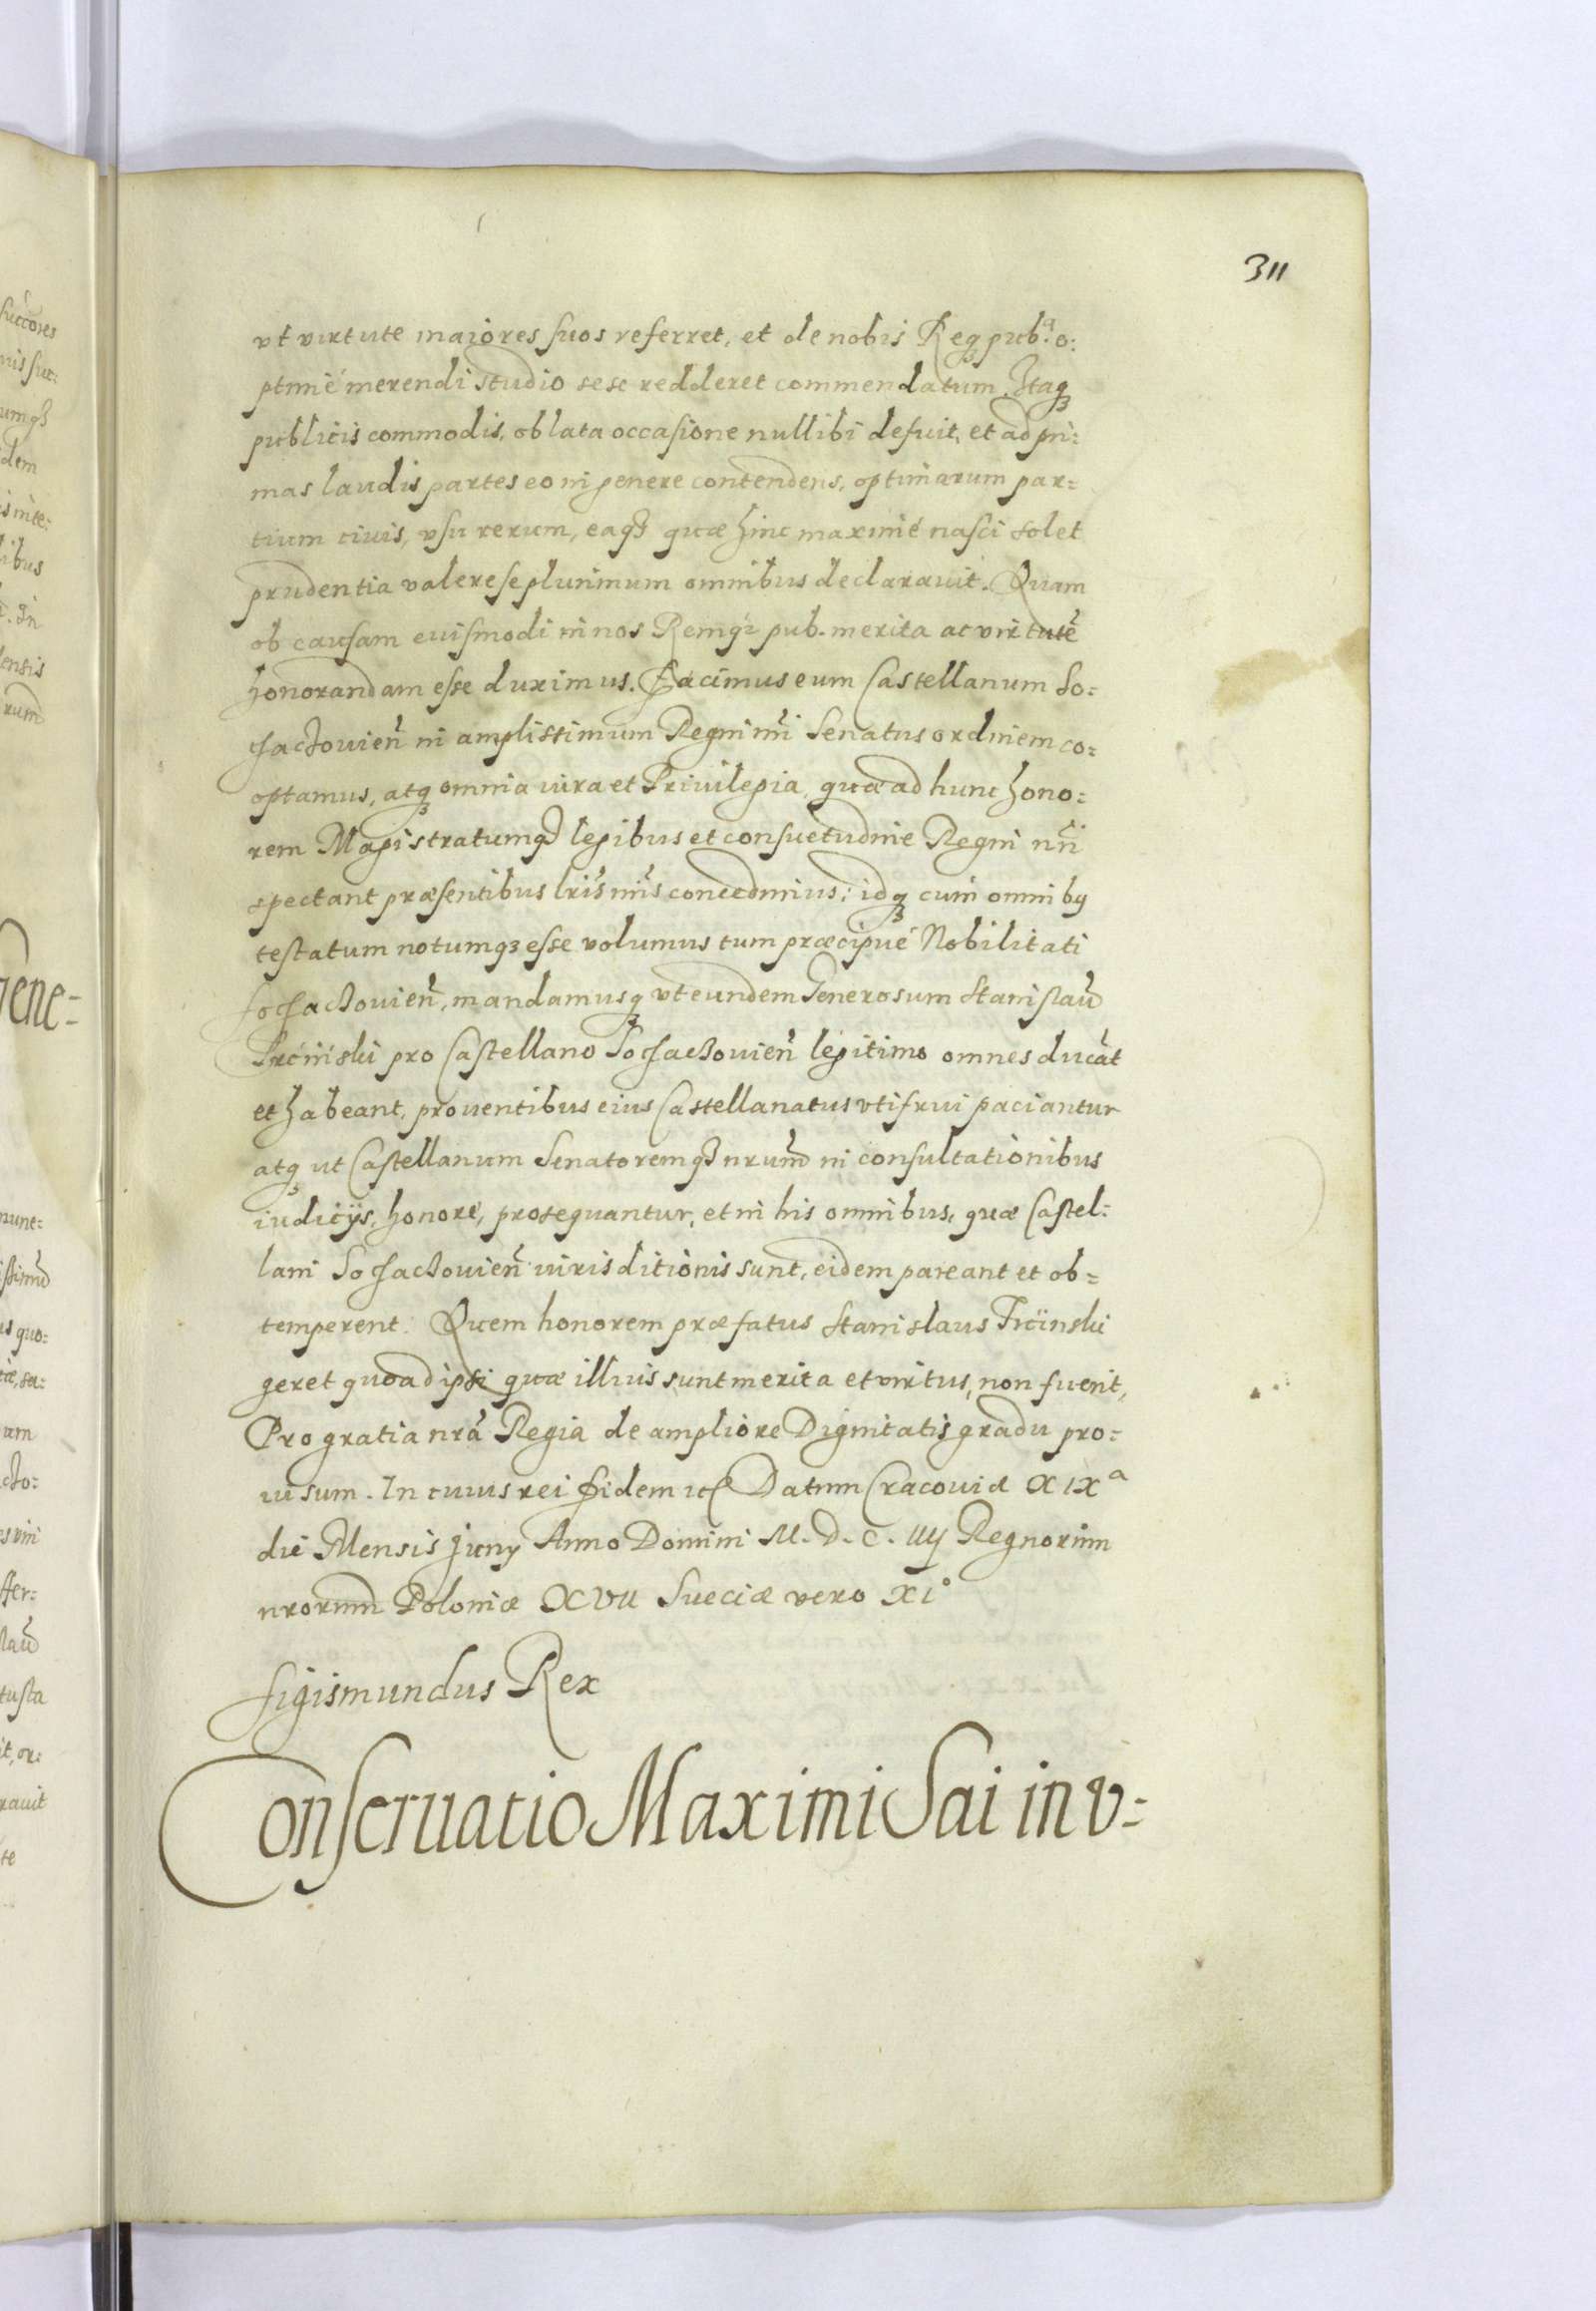 311
vt virtute maiores suos referret, et de nobis Reqꝫ pub.ᵃ o:
ptimè merendi studio sese redderet commendatum. Itaqꝫ
publicis commodis, oblata occasione nullibi defuit, et ad pri:
mas laudis partes eo in genere contendens, optimarum par=
tium civis, vsu rerum, eaqꝫ quæ hinc maximè nasci solet
prudentia valere se plurimum omnibus declarauit. Quam
ob causam euismodi in nos Remqꝫ pub. merita ac virtutẽ
honorandam esse duximus. Facimus eum Castellanum So=
chaczouien̄ in amplissimum Regni nr̄i Senatus ordinem co=
optamus, atqꝫ omnia iura et Priuilegia, quæ ad hunc hono=
rem Magistratumqꝫ legibus et consuetudine Regni nr̄i
spectant præsentibus lr̄is nr̄is concedimus: idqꝫ cum omnibꝰ
testatum notumqꝫ esse volumus tum præcipuè Nobilitati
Sochaczouien̄, mandamusqꝫ vt eundem Generosum Stanislaũ
pro Castellano Sochaczouien̄ legitimo omnes ducãt
et habeant, prouentibus eius Castellanatus vtifrui paciantur
atqꝫ ut Castellanum Senatoremqꝫ nr̄um in consultationibus
iudicijs, honore, prosequantur, et in his omnibus, quæ Castel:
lani Sochaczouien̄ iurisditionis sunt, eidem pareant et ob=
temperent. Quem honorem præfatus Stanislaus
geret quoad ipsi quæ illius sunt merita et virtus, non fuerit,
Pro gratia nr̄a Regia de ampliore Dignitatis gradu pro=
uisum. In cuius rei fidem etc Datum Cracouiæ XIXᵃ
die Mensis Juny Anno Domini M. D. C. IIIJ Regnorum
nrorum Poloniæ XVII Sueciæ vero XI°
Sigismundus Rex
Conseruatio Maximi Sai in v=